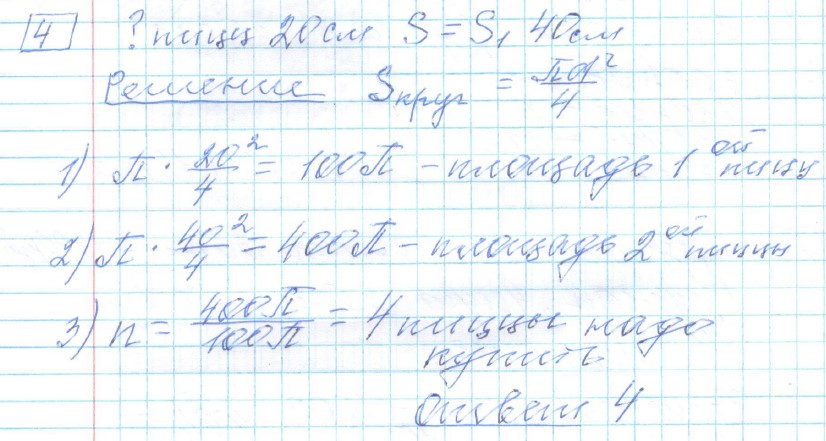 4 ? пицц 20 см S = S₁ 40 см
Решение Sкруг = πd²/4
1) π · 20²/4 = 100π – площадь 1ой пицы
2) π · 40²/4 = 400π – площадь 2ой пиццы
3) n = 400π/100π = 4 пиццы надо
купить
ответ 4